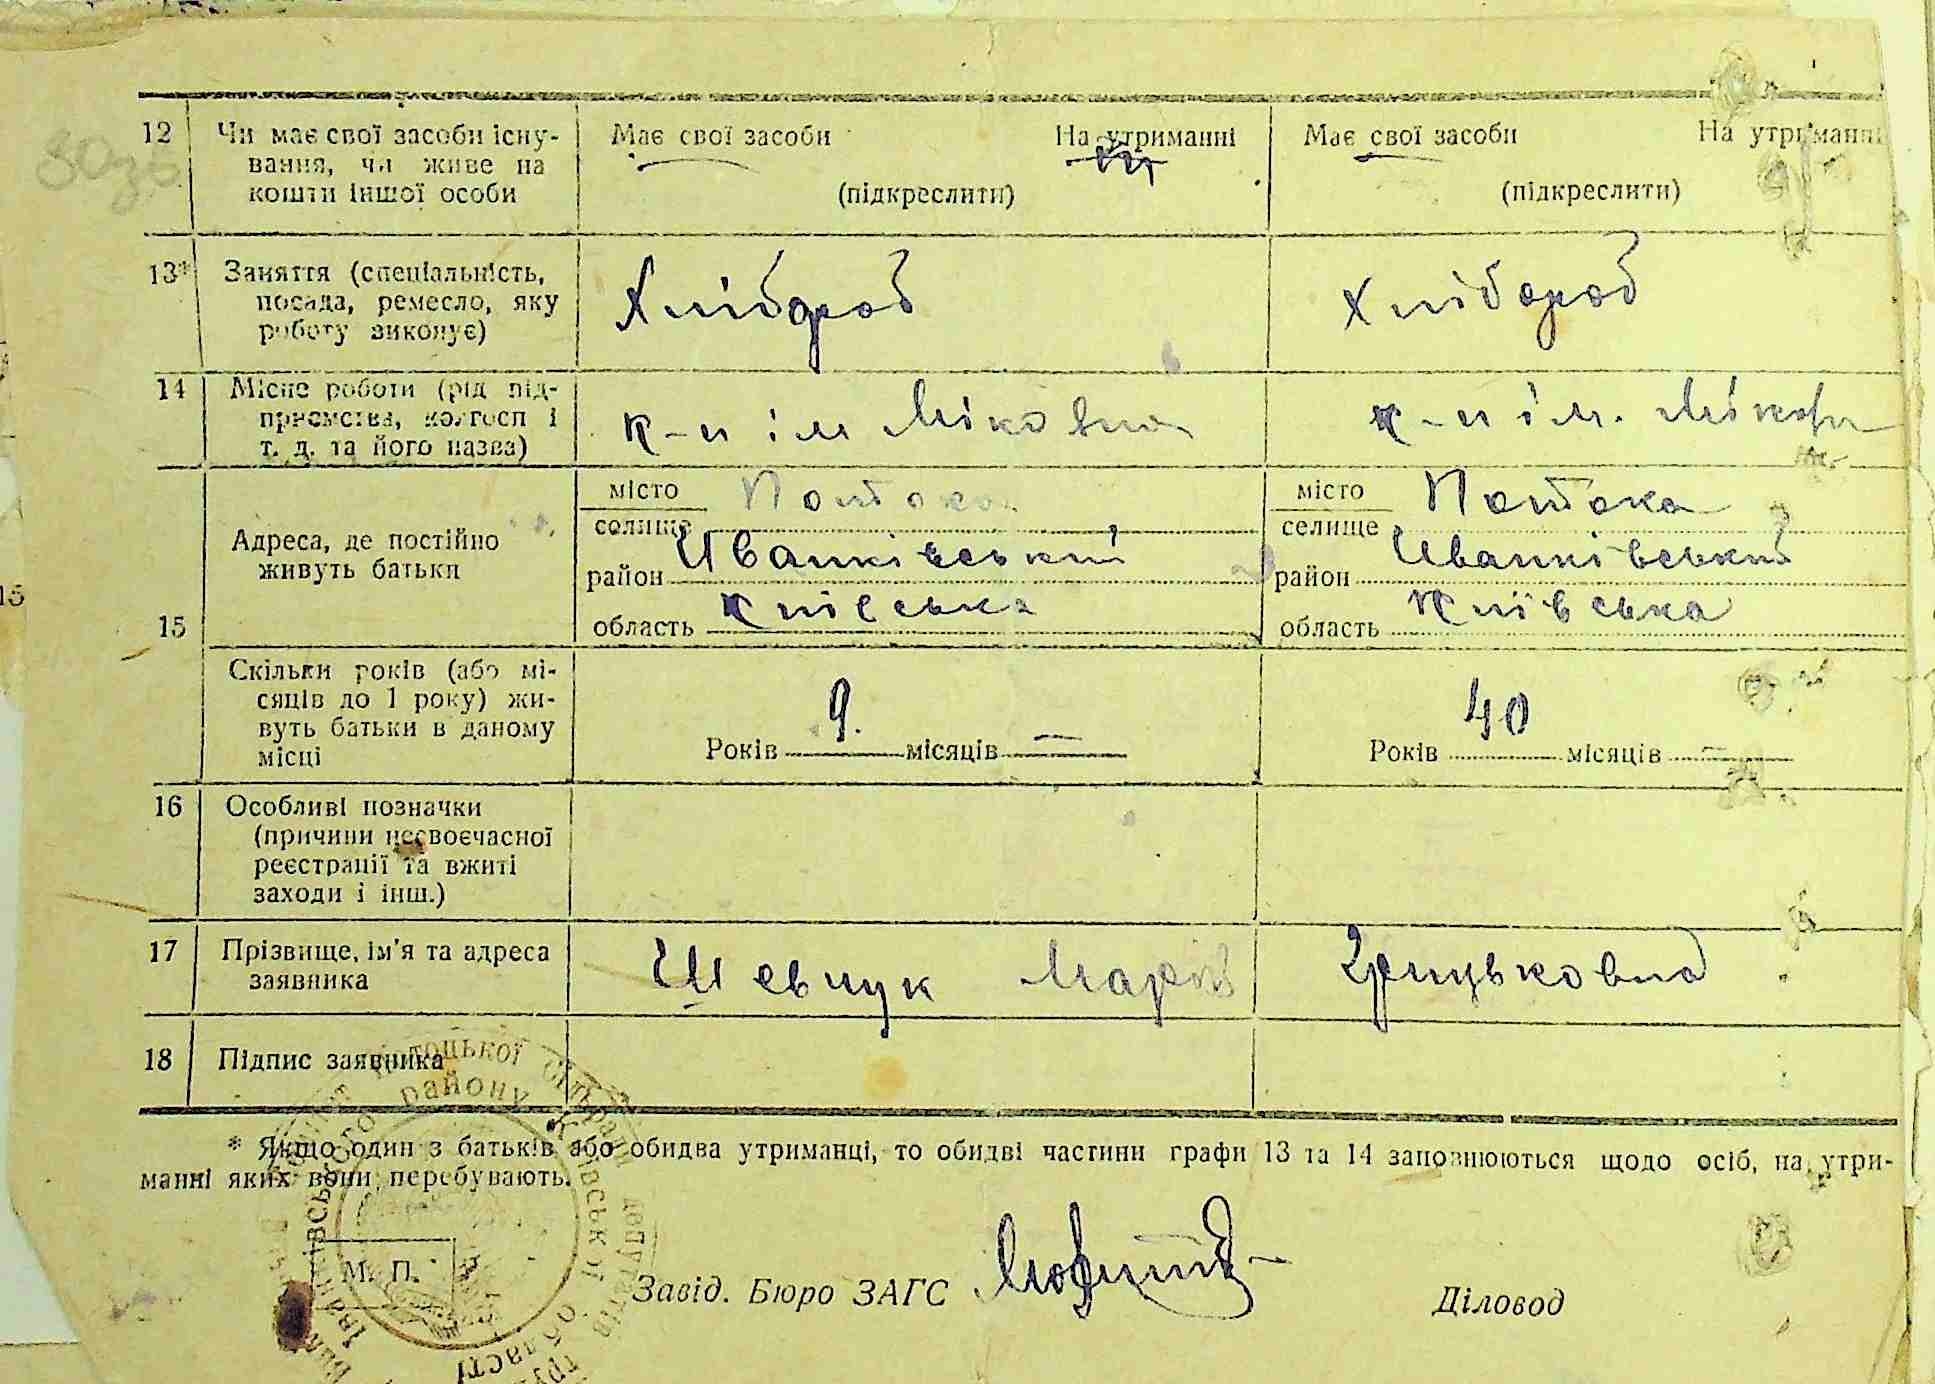 12 Чи має свої засоби існу-
вання, чи живе на
кошти іншої особи
Має свої засоби На утриманні
(підкреслити)
Має свої засоби На утриманні
(підкреслити)
13* Заняття (спеціальність,
посада, ремесло, яку
роботу виконує)
Хлібороб
Хлібороб
14 Місце роботи (рід під-
приємства, колгосп і
т. д. та його назва)
к-п ім Мікояна
к-п ім. Мікояна
15
Адреса, де постійно
живуть батьки
місто
селище Потока
район Иванківський
область Київська
місто
селище Потока
район Иванківський
область Київська
Скільки років (або мі-
сяців до 1 року) жи-
вуть батьки в даному
місці
Років 9. місяців —
Років 40 місяців —
16 Особливі позначки
(причини несвоєчасної
реєстрації та вжиті
заходи і інш.)
17 Прізвище, ім'я та адреса
заявника
Шевчук Марія Грицьковна
18 Підпис заявника
* Якщо один з батьків або обидва утриманці, то обидві частини графи 13 та 14 заповнюються щодо осіб, на утри-
манні яких вони перебувають.
М. П.
Завід. Бюро ЗАГС
Діловод
15